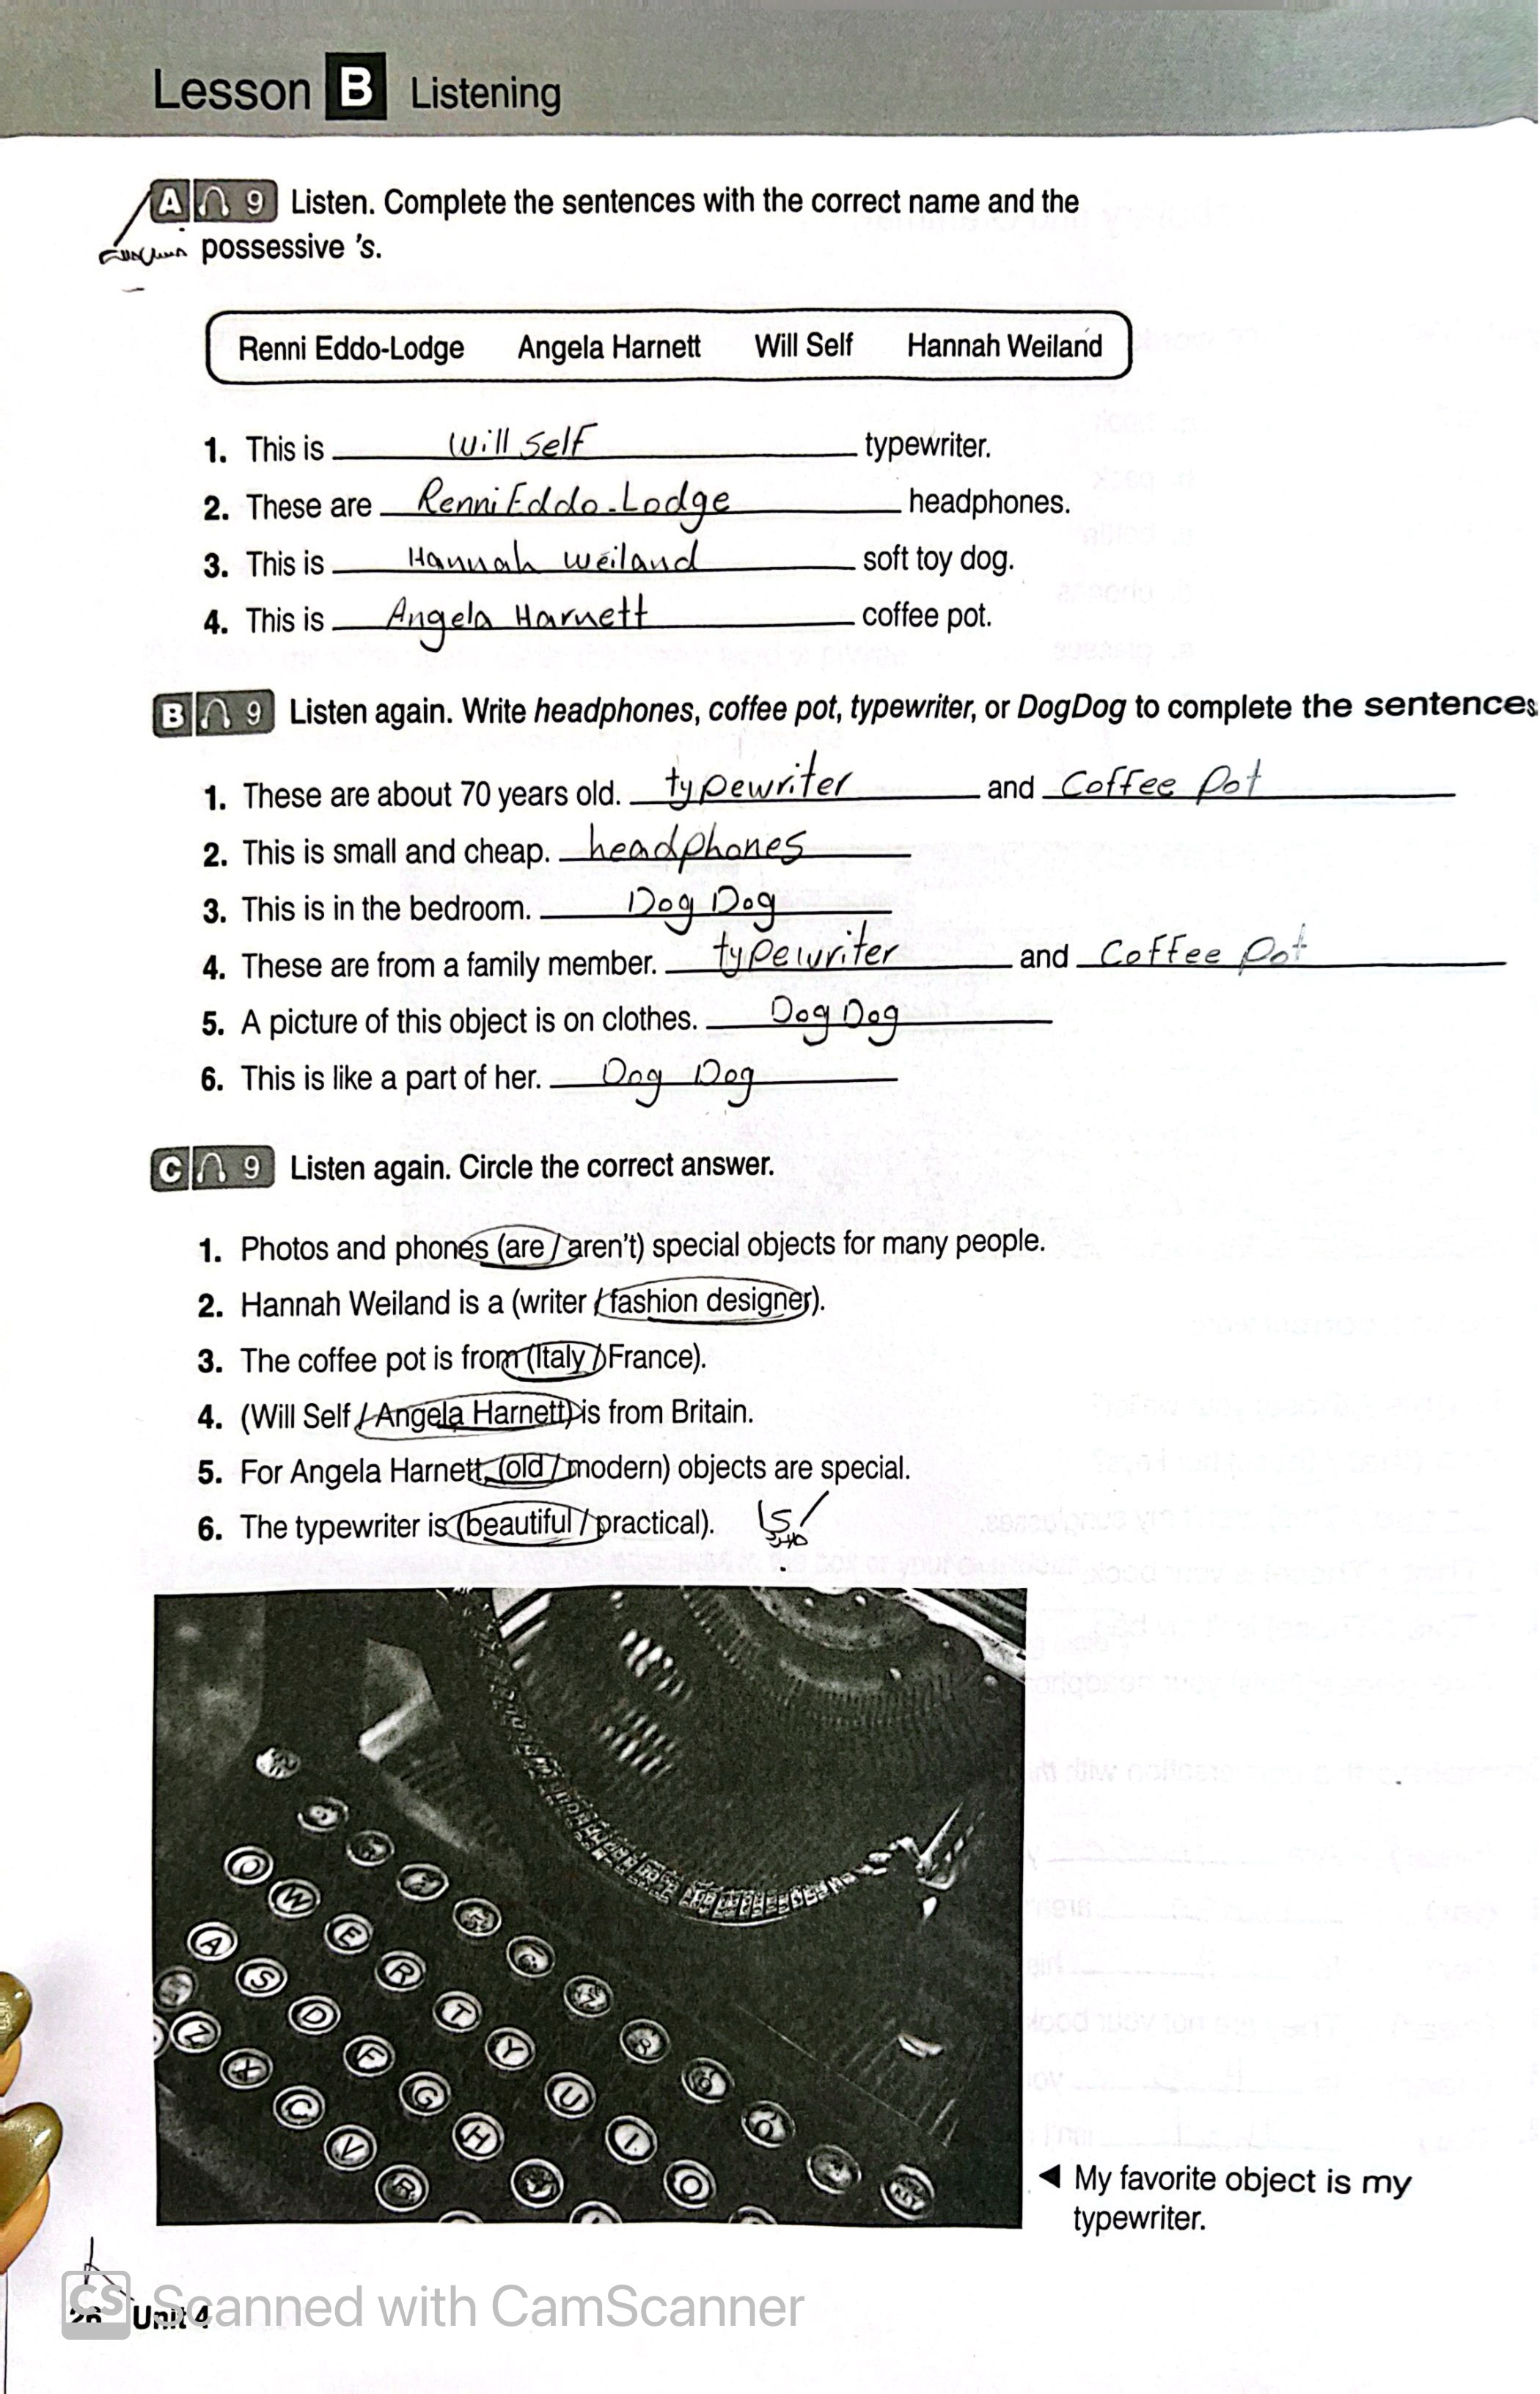 Lesson B Listening
A 9 Listen. Complete the sentences with the correct name and the
possessive 's.
Renni Eddo-Lodge Angela Harnett Will Self Hannah Weiland
1. This is will self typewriter.
2. These are Renni Eddo-Lodge headphones.
3. This is Hannah weiland soft toy dog.
4. This is Angela Harnett coffee pot.
B 9 Listen again. Write headphones, coffee pot, typewriter, or DogDog to complete the sentences
1. These are about 70 years old. typewriter and Coffee Pot
2. This is small and cheap. headphones
3. This is in the bedroom. Dog Dog
4. These are from a family member. typewriter and Coffee Pot
5. A picture of this object is on clothes. Dog Dog
6. This is like a part of her. Dog Dog
C 9 Listen again. Circle the correct answer.
1. Photos and phones (are / aren't) special objects for many people.
2. Hannah Weiland is a (writer / fashion designer).
3. The coffee pot is from (Italy / France).
4. (Will Self / Angela Harnett) is from Britain.
5. For Angela Harnett, (old / modern) objects are special.
6. The typewriter is (beautiful / practical).
◀ My favorite object is my
typewriter.
26 Unit 4
CS Scanned with CamScanner